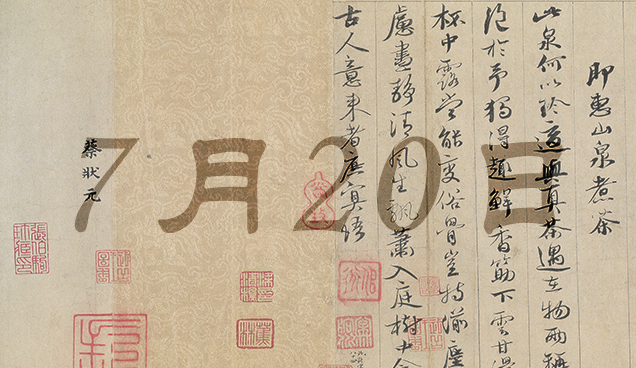 即惠山泉煮茶
此泉何以珍適與真茶遇在物兩稱
絕於予獨得趣鮮香筯下雲甘滑
杯中露當能變俗骨豈特湔塵
慮晝靜清風生飄蕭入庭樹中含
古人意來者庶冥悟
蔡狀元
7月20日